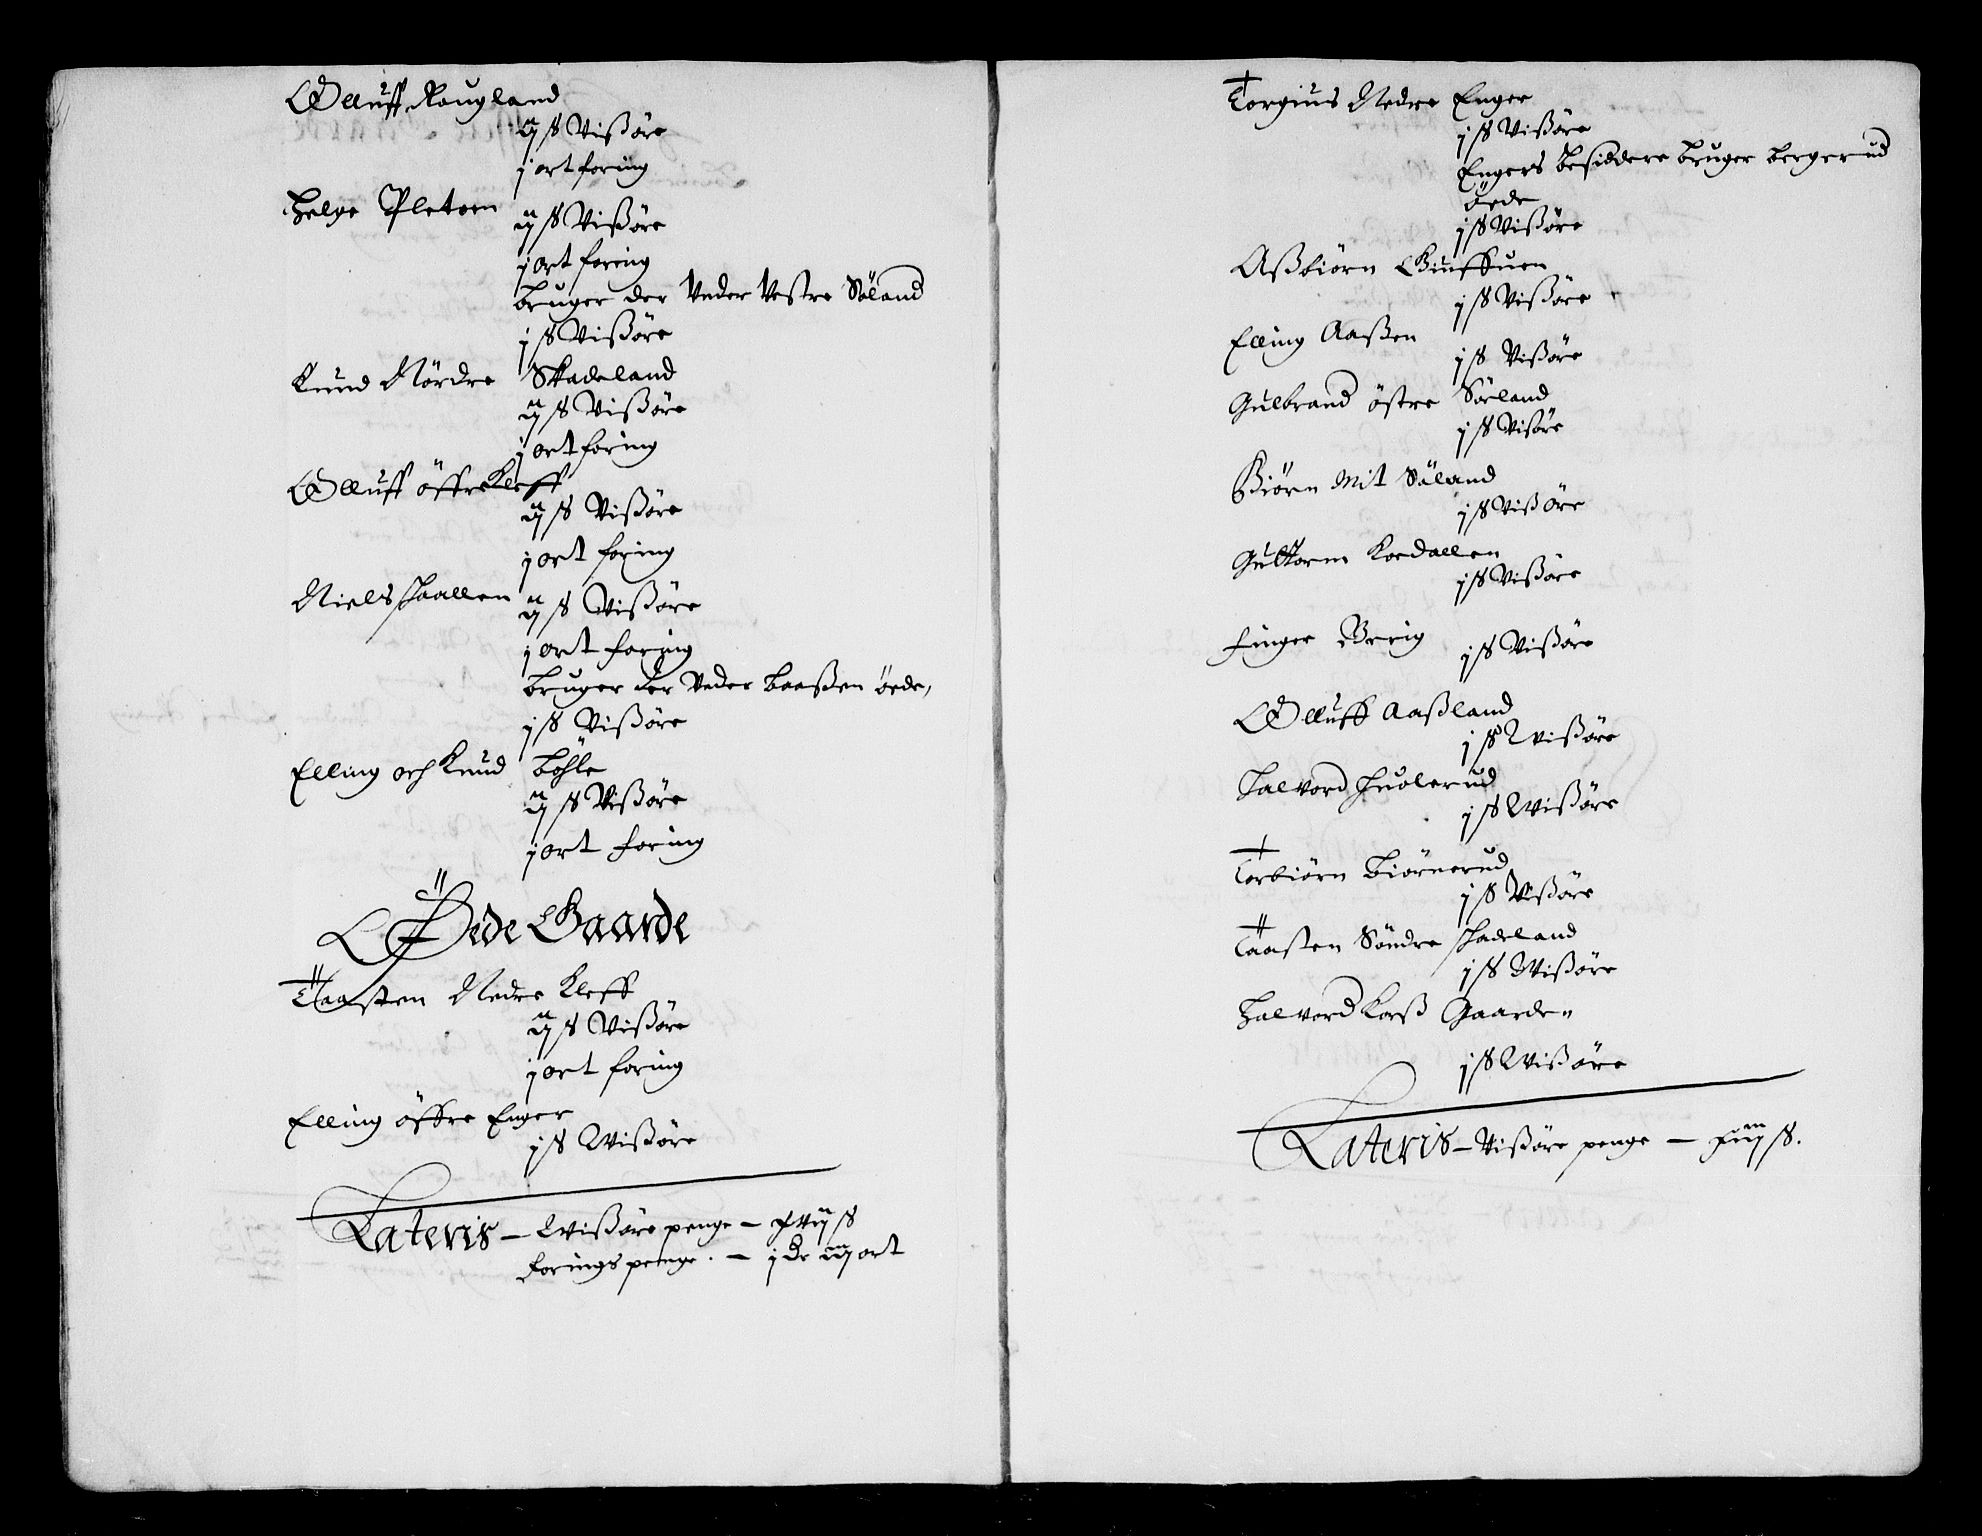 Olluff Rougland
ij ß Vißöre
j ort foring
Helge Pletoen
ij ß Vißöre
j ort foring
bruger der Vnder Vestre Söland
j ß Vißöre
Knud Nördre Skadeland
ij ß Vißöre
j ort foring
Olluff öffre Kleff
ij ß Vißöre
j ort foring
Niels Haallen
ij ß Vißöre
j ort foring
bruger der Vnder baaßen öede,
j ß Vißöre
Elling och Knud Böhle
ij ß Vißöre
j ort foring
Öede Gaarde
Taasten Nedre Kleff
ij ß Vißöre
j ort foring
Elling öffre Enger
j ß Wißöre
Lateris – Wißöre penge – xvij ß
forings penge. – j dr iij ort
Torgius Nedre Enger
j ß Vißöre
Engers besiddere bruger bergerud
öede
j ß Vißöre
Aßbiörn
j ß Vißöre
Elling Aaßen
j ß Vißöre
Gulbrand östre Sörland
j ß Visöre
Biörn Mit Söland
j ß Vißöre
Guttorm Kordallen
j ß Vißöre
Finger Berig
j ß Vißöre
Olluff Aaßland
j ß Wißöre
Halvord Huolerud
j ß Wißöre
Torbiörn Biörnerud
j ß Vißöre
Taasten Söndre Skadeland
j ß Wißöre
Halvord Korß Gaarden
j ß Wißöre
Lateris – Vißöre penge – xiij ß.